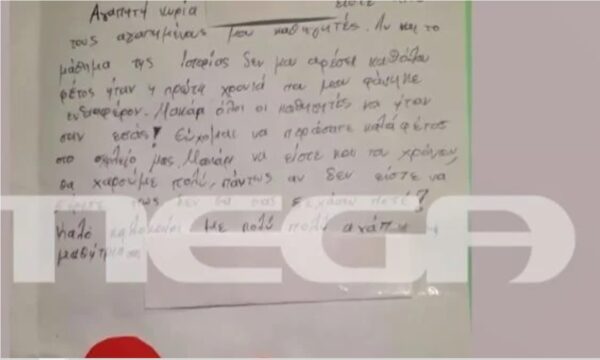 Αγαπητή κυρία είστε από
τους αγαπημένους μου καθηγητές. Αν και το
μάθημα της Ιστορίας δεν μου αρέσει καθόλου
φέτος ήταν η πρώτη χρονιά που μου φάνηκε
ενδιαφέρον. Μακάρι όλοι οι καθηγητές να ήταν
σαν εσάς! Εύχομαι να περάσατε καλά φέτος
στο σχολείο μας. Μακάρι να είστε και του χρόνου,
θα χαρούμε πολύ, πάντως αν δεν είστε να
ξέρετε πως δεν θα σας ξεχάσω ποτέ!
Καλό καλοκαίρι με πολύ πολύ αγάπη η
μαθήτρια σας
MEGA